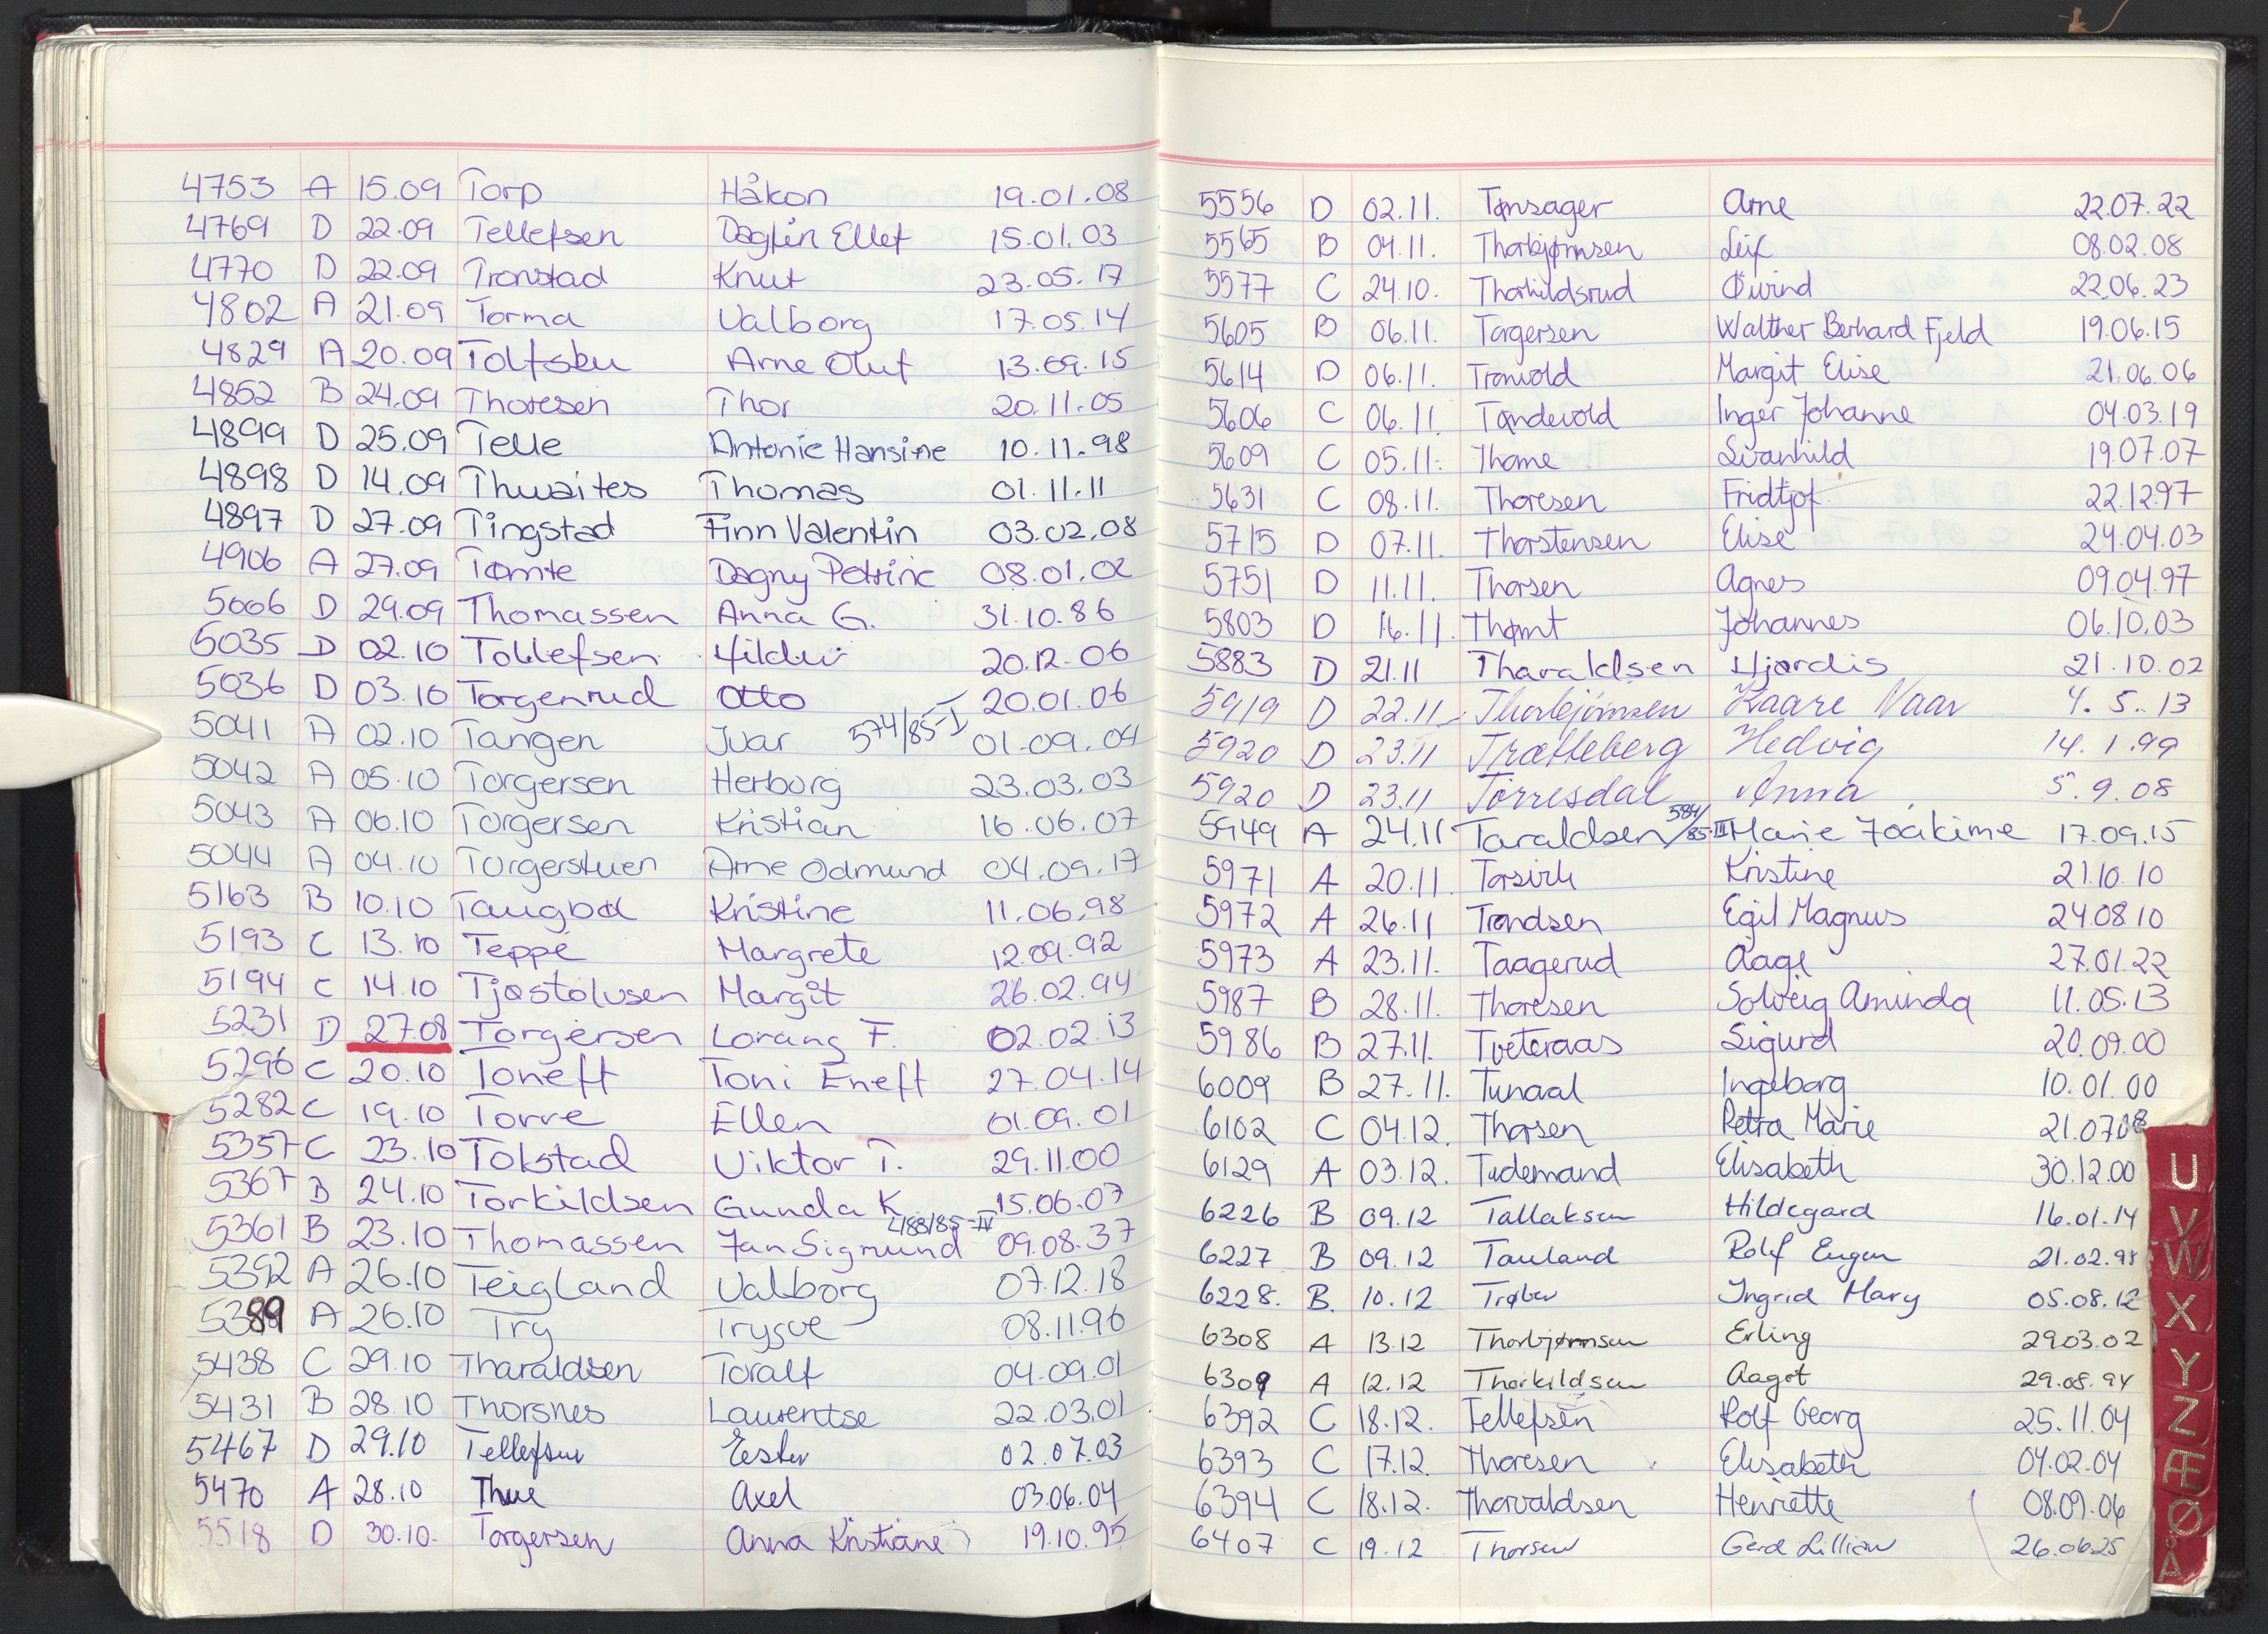 4753 A 15.09 Torp Håkon 19.01.08
4769 D 22.09 Tellefsen Dagfin Ellef 15.01.03
4770 D 22.09 Tronstad Knut 23.05.17
4802 A 21.09 Torma Valborg 17.05.14
4829 A 20.09 Toftsbu Arne Oluf 13.09.15
4852 B 24.09 Thoresen Thor 20.11.05
4899 D 25.09 Telle Antonie Hansine 10.11.98
4898 D 14.09 Thwaites Thomas 01.11.11
4897 D 27.09 Tingstad Finn Valentin 03.02.08
4906 A 27.09 Tømte Dagny Petrine 08.01.02
5006 D 29.09 Thomassen Anna G. 31.10.86
5035 D 02.10 Tollefsen Hildur 20.12.06
5036 D 03.10 Torgenrud Otto 20.01.06
5041 A 02.10 Tangen Ivar 574/85-I 01.09.04
5042 A 05.10 Torgersen Herborg 23.03.03
5043 A 06.10 Torgersen Kristian 16.06.07
5044 A 04.10 Torgerstuen Arne Odmund 04.09.17
5163 B 10.10 Taugbøl Kristine 11.06.98
5193 C 13.10 Teppe Margrete 12.09.92
5194 C 14.10 Tjøstolvsen Margit 26.02.94
5231 D 27.08 Torgersen Lorang F. 02.02.13
5296 C 20.10 Toneff Toni Eneff 27.04.14
5282 C 19.10 Torre Ellen 01.09.01
5357 C 23.10 Tokstad Viktor T. 29.11.00
5367 B 24.10 Torkildsen Gunda K. 15.06.07
5361 B 23.10 Thomassen Jan Sigmund 488/85-IV 09.08.37
5392 A 26.10 Teigland Valborg 07.12.18
5389 A 26.10 Try Trygve 08.11.96
5438 C 29.10 Tharaldsen Toralf 04.09.01
5431 B 28.10 Thorsnes Laurentse 22.03.01
5467 D 29.10 Tellefsen Ester 02.07.03
5470 A 28.10 Thue Axel 03.06.04
5518 D 30.10. Torgersen Anna Kristiane 19.10.95
5556 D 02.11. Tønsager Arne 22.07.22
5565 B 04.11. Thorbjørnsen Leif 08.02.08
5577 C 24.10. Thorkildsrud Øivind 22.06.23
5605 B 06.11. Torgersen Walther Berhard Fjeld 19.06.15
5614 D 06.11. Tronvold Margit Elise 21.06.06
5606 C 06.11. Tøndevold Inger Johanne 04.03.19
5609 C 05.11. Thome Svanhild 19.07.07
5631 C 08.11. Thoresen Fridtjof 22.12.97
5715 D 07.11. Thorstensen Elise 24.04.03
5751 D 11.11. Thorsen Agnes 09.04.97
5803 D 16.11. Thømt Johannes 06.10.03
5883 D 21.11 Tharaldsen Hjørdis 21.10.02
5919 D 22.11 Thorbjørnsen Kaare Naar 4.5.13
5920 D 23.11 Trætteberg Hedvig 14.1.99
5920 D 23.11 Tørresdal Anna 5.9.08
5949 A 24.11 Taraldsen 584/85-III Marie Joakime 17.09.15
5971 A 20.11. Torsvik Kristine 21.10.10
5972 A 26.11 Trondsen Egil Magnus 24.08.10
5973 A 23.11. Taagerud Aage 27.01.22
5987 B 28.11. Thoresen Solveig Aminda 11.05.13
5986 B 27.11. Tveteraas Sigurd 20.09.00
6009 B 27.11. Tunaal Ingeborg 10.01.00
6102 C 04.12. Thorsen Petra Marie 21.07.08
6129 A 03.12. Tidemand Elisabeth 30.12.00
6226 B 09.12 Tallaksen Hildegard 16.01.14
6227 B 09.12 Tauland Rolf Eugen 21.02.98
6228. B. 10.12 Trøber Ingrid Mary 05.08.12
6308 A 13.12 Thorbjørnsen Erling 29.03.02
6309 A 12.12 Thorkildsen Aagot 29.08.94
6392 C 18.12. Tellefsen Rolf Georg 25.11.04
6393 C 17.12. Thoresen Elisabeth 04.02.04
6394 C 18.12. Thorvaldsen Henriette 08.09.06
6407 C 19.12 Thorsen Gerd Lillian 26.06.25
U
V
W
X
Y
Z
Æ
Ø
Å